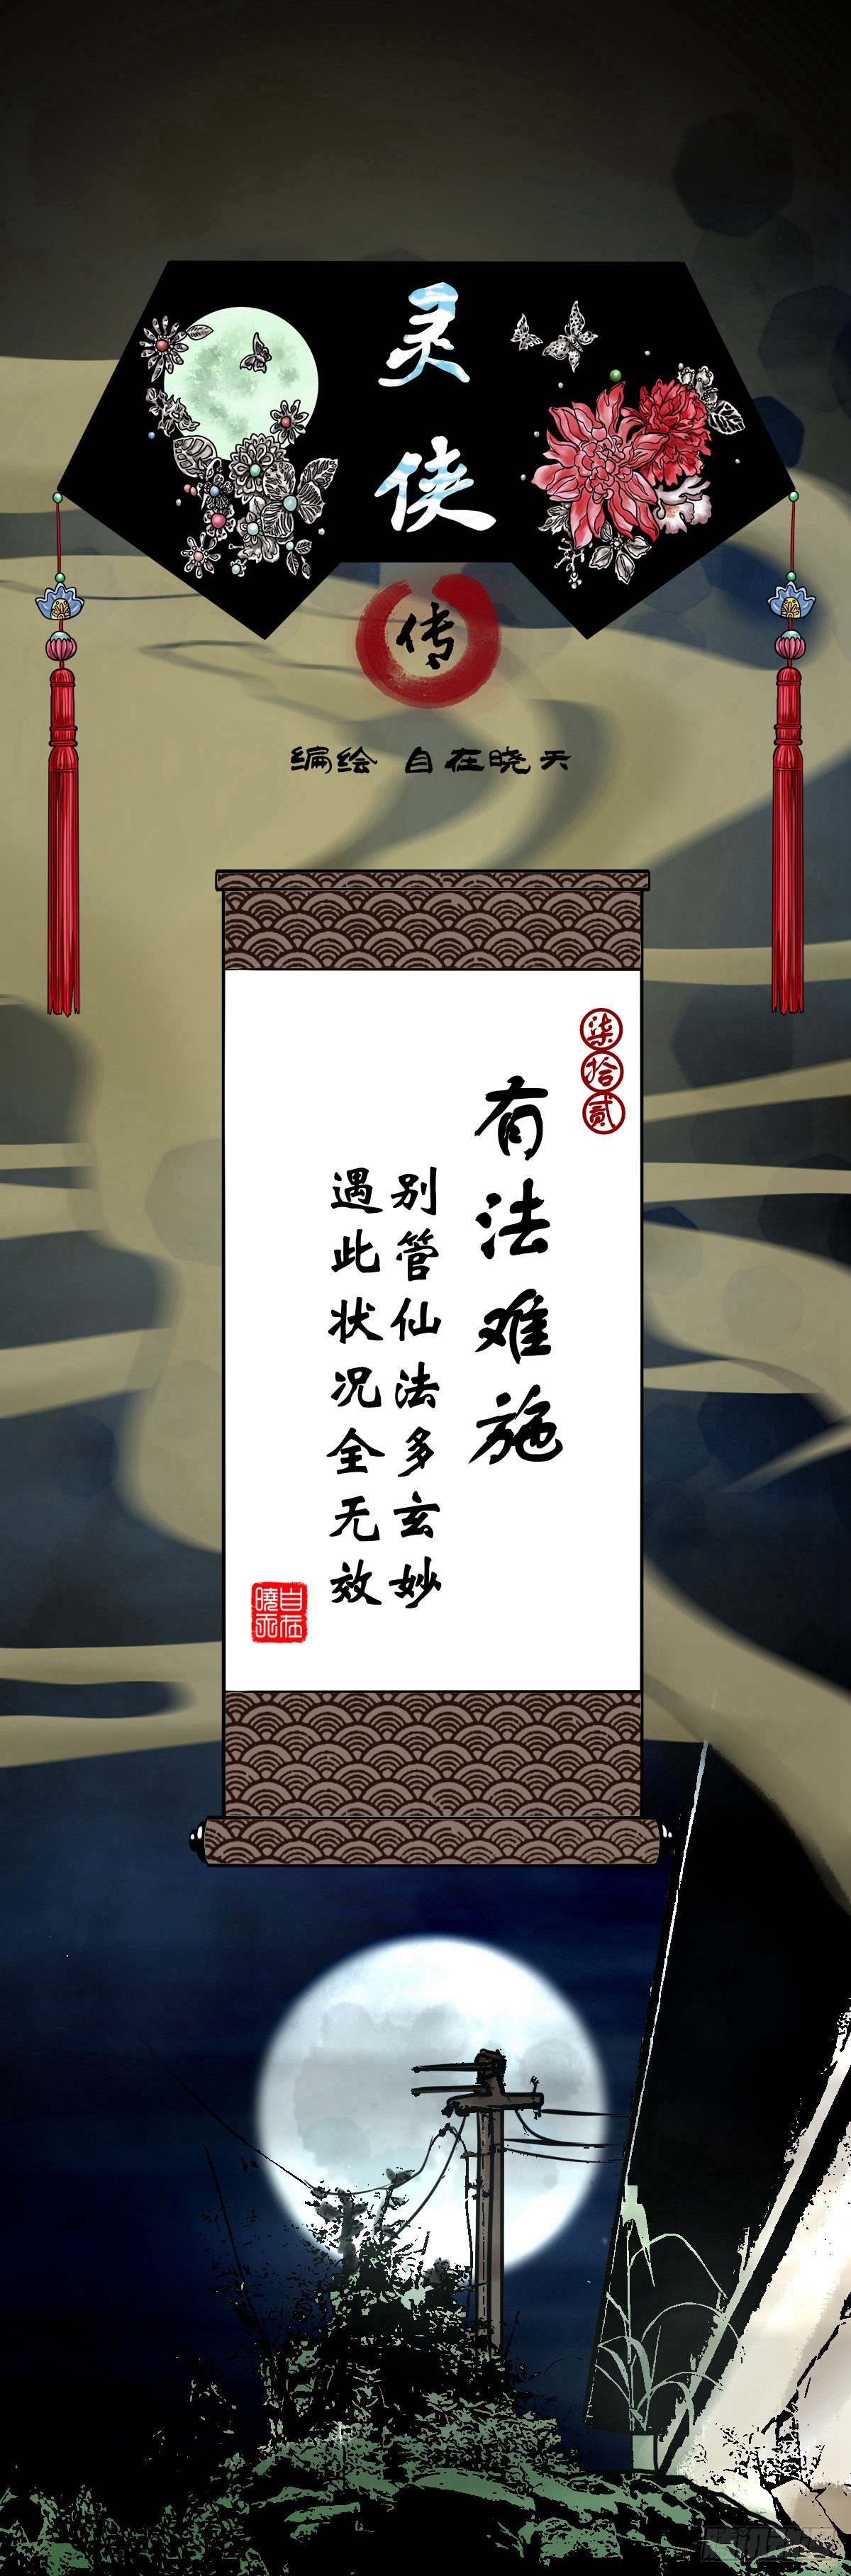 灵侠
传
编绘 自在晓天
柒拾贰
有法难施
别管仙法多玄妙
遇此状况全无效
自在曉天
腾讯动漫